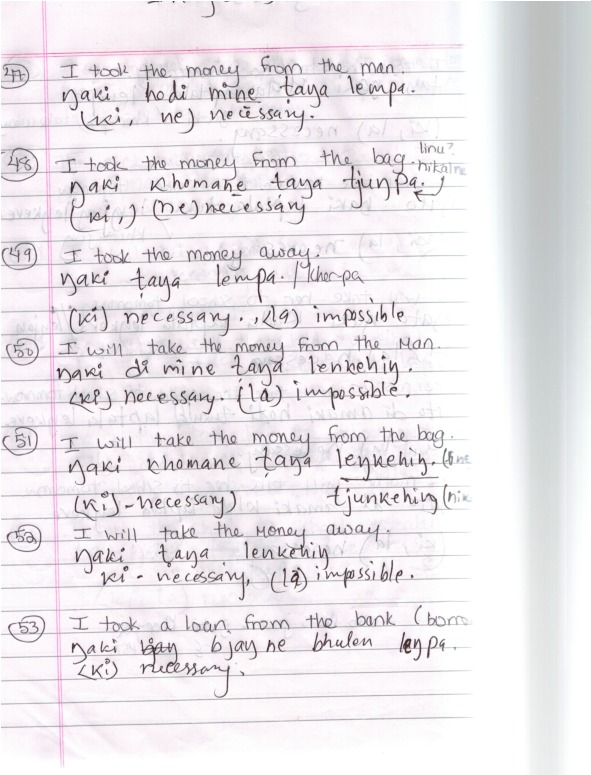 47 I took the money from the man.
ŋaki hodi mine taya lempa.
(ki, ne) necessary.
linu?
48 I took the money from the bag. nikalne
ŋaki khomane taya tjunpa.
(ki,) (ne) necessary
49 I took the money away.
ŋaki ṭaya lempa. / khorpa
(ki) necessary., (la) impossible
50 I will take the money from the Man.
ŋaki di mine taya lenkehiŋ.
(ki) necessary. (la) impossible.
51 I will take the money from the bag.
ŋaki khomane ṭaya leŋkehiŋ.
(ki) - necessary) tjunkehiŋ (nik
52 I will take the Money away.
ŋaki ṭaya lenkehiŋ
ki - necessary, (la) impossible.
53 I took a loan from the bank (borr
ŋaki bjay ne bhulen leŋpa.
(ki) necessary.